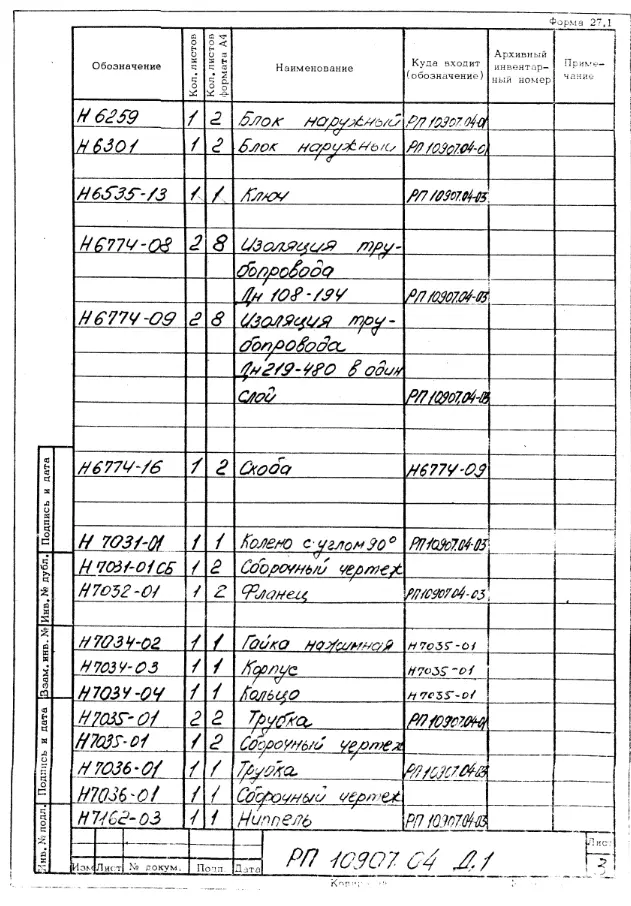 Форма 27,1
Обозначение Кол. листов Кол. листов формата А4 Наименование Куда входит (обозначение) Архивный инвентар-ный номер Приме-чание
Н 6259 1 2 Блок наружный РП 10907.04-01
Н 6301 1 2 Блок наружный РП 10907.04-01
Н6535-13 1 1 Ключ РП 10907.04-03
Н6774-08 2 8 Изоляция тру-
бопровода
Дн 108-194 РП 10907.04-03
Н6774-09 2 8 Изоляция тру-
бопровода
Дн219-480 в один
слой РП 10907.04-03
Н6774-16 1 2 Скоба Н6774-09
Н 7031-01 1 1 Колено с углом 90° РП10907.04-03
Н 7031-01СБ 1 2 Сборочный чертеж
Н7032-01 1 2 Фланец РП10907.04-03
Н7034-02 1 1 Гайка нажимная Н7035-01
Н7034-03 1 1 Корпус Н7035-01
Н7034-04 1 1 Кольцо Н7035-01
Н7035-01 2 2 Трубка РП 10907.04-01
Н7035-01 1 2 Сборочный чертеж
Н7036-01 1 1 Трубка РП10907.04-03
Н7036-01 1 1 Сборочный чертеж
Н7162-03 1 1 Ниппель РП 10907.04-03
Инв. № подл. Подпись и дата Взам. инв. № Инв. № дубл. Подпись и дата
Изм Лист № докум. Подп. Дата
РП 10907.04 Д.1
Лист
2